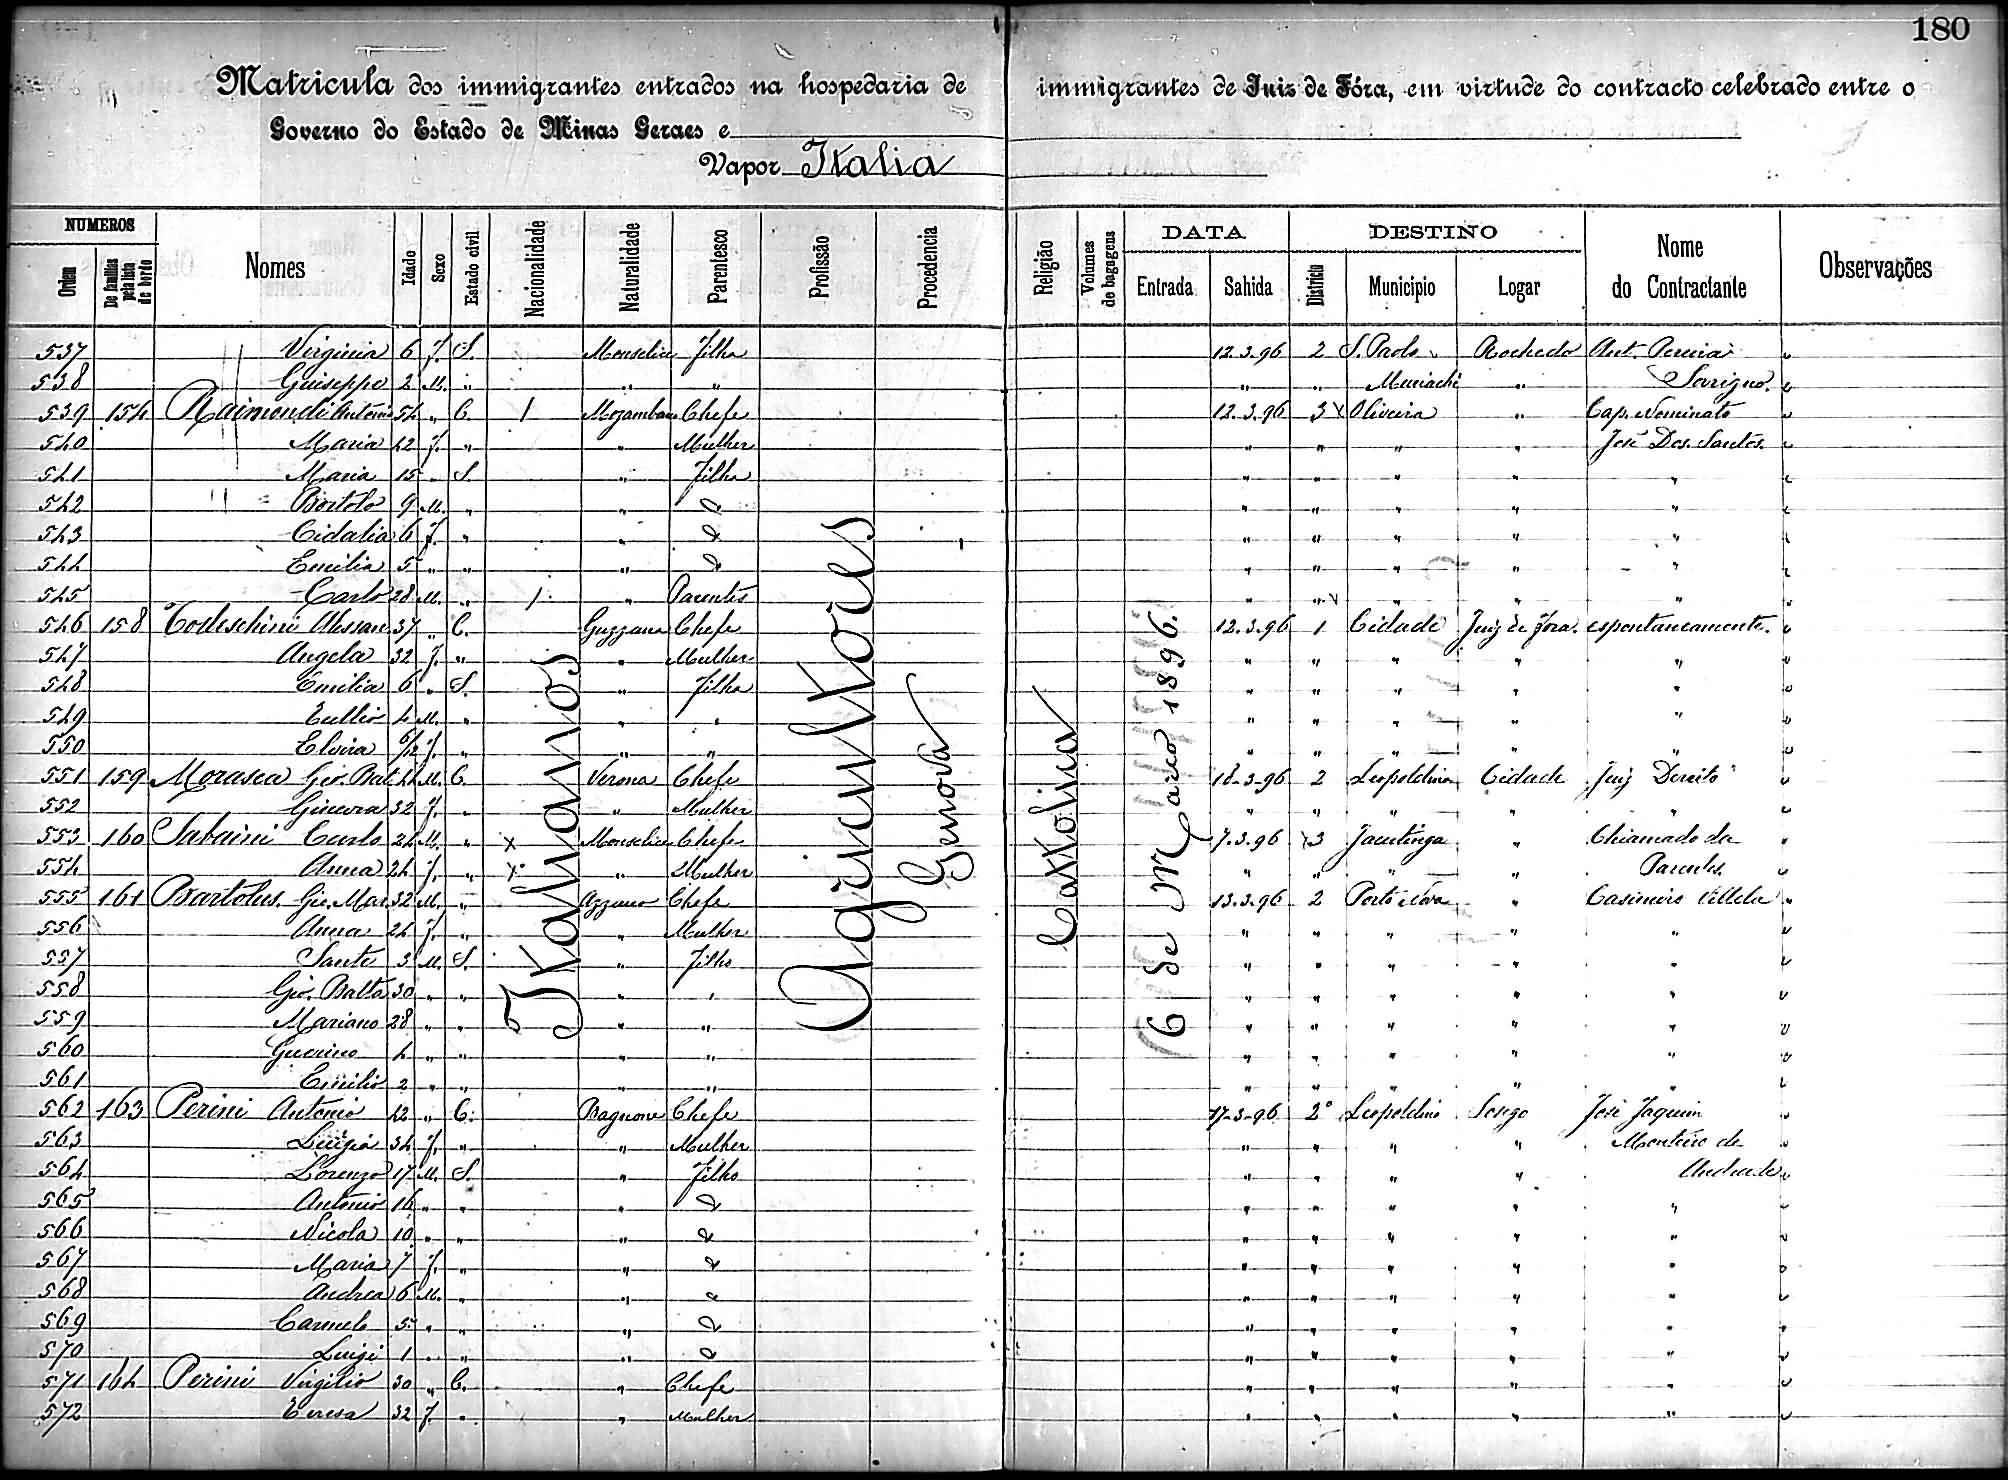 180
Matricula dos immigrantes entrados na hospedaria de immigrantes de Juiz de Fóra, em virtude do contracto celebrado entre o
Governo do Estado de Minas Geraes e
Vapor Italia
NUMEROS DATA DESTINO
Ordem De familias pela lista de bordo Nomes Idade Sexo Estado civil Nacionalidade Naturalidade Parentesco Profissão Procedencia Religião Volumes de bagagens Entrada Sahida Districto Municipio Logar Nome do Contractante Observações
Italianos
Agricultores
Genova
Cattolica
6 de Março 1896.
537 Virginia 6 f. S. Monselice Filha 12.3.96 2 S. Paolo Rochedo Ant. Pereira
538 Guiseppe 2 M. " " " " " Muriaché "
539 154 Raimondi Antonio 54 " C. 1 Chefe 12.3.96 3 Oliveira " Cap. Neminato
540 Maria 42 f. " " Mulher " " " " José Dos. Santos.
541 Maria 15 " S. " Filha " " " " "
542 Bortolo 9 M. " " " " " " " "
543 Cidalia 6 f. " " " " " " " "
544 Emilia 5 " " " " " " " " "
545 Carlo 28 M. " 1 " Parentes " " " " "
546 158 Todeschini Alessan. 37 " C. Guzzana Chefe 12.3.96 1 Cidade Juiz de Fora. espontaneamente.
547 Angela 32 f. " " Mulher " " " " "
548 Emilia 6 " S. " Filha " " " " "
549 Tullio 4 M. " " " " " " " "
550 Elvira f. " " " " " " " "
551 159 Morasca Gio. Bat M. C. Verona Chefe 18-3-96 2 Leopoldina Cidade Juiz Dereito
552 Ginevra 32 f. " " Mulher " " " " "
553 160 Sabaini Carlo 24 M. " x Monselice Chefe 7.3.96 3 Jacutinga " Chiamado da
554 Anna 24 f. " x " Mulher " " " " Parentes.
555 161 Bartolus. Gio. Mar. 32 M. " Azzano Chefe 13.3.96 2 Porto Nova " Casimiro Villela
556 Anna 24 f. " " Mulher " " " " "
557 Sante 3 M. S. " Filho " " " " "
558 Gio. Batta 30 " " " " " " " " "
559 Mariano 28 " " " " " " " " "
560 Guerino 4 " " " " " " " " "
561 Emilio 2 " " " " " " " " "
562 163 Perini Antonio 42 " C. Bagnone Chefe 17-3-96 2º Leopoldina José Jaquim
563 Luigia 34 f. " " Mulher " " " " Monteiro de
564 Lorenzo 17 M. S. " Filho " " " " Andrade
565 Antonio 16 " " " " " " " " "
566 Nicola 10 " " " " " " " " "
567 Maria 7 f. " " " " " " " "
568 Andrea 6 M. " " " " " " " "
569 Carmelo 5 " " " " " " " " "
570 Luigi 1 " " " " " " " " "
571 164 Perini Virgilio 30 " C. " Chefe " " " " "
572 Teresa 32 f. " " Mulher " " " " "